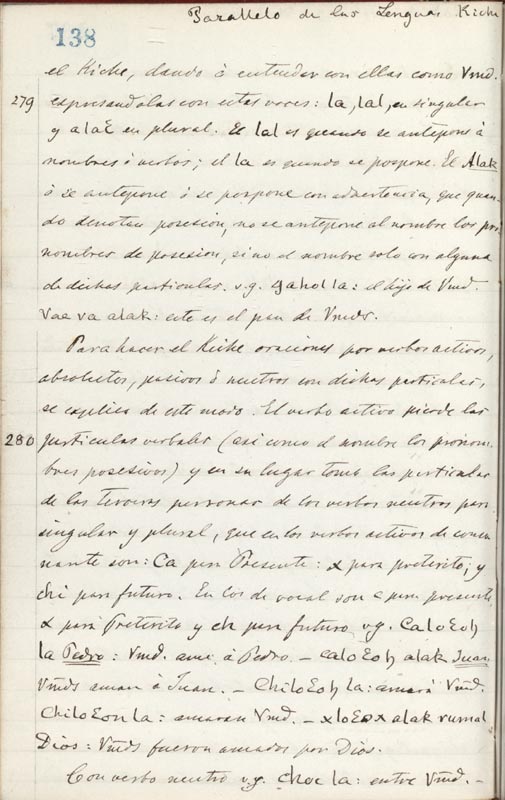 Parallelo de las Lenguas Kiche
138
el Kiche, dando à entender con ellas como Vmd.
279 expresandolas con estas voces: la, lal, en singular
y alaE en plural. El lal es quando se antepone à
nombres ò verbos; el la es quando se pospone. El Alak
ò se antepone ò se pospone con advertencia, que quan-
do denotan posesion, no se antepone al nombre los pro
nombres de posesion, sino el nombre solo con alguna
de dichas particulas. v.g. gahol la: el hijo de Vmd.
Vae va alak: este es el pan de Vmds.
Para hacer el Kiche oraciones por verbos activos,
absolutos, pasivos ò neutros con dichas particulas,
se explica de este modo. El verbo activo pierde las
280 particulas verbales (asi como el nombre los pronom-
bres posesivos) y en su lugar toma las particulas
de las terceras personas de los verbos neutros para
singular y plural, que en los verbos activos de conso
nante son: Ca para Presente: x para preterito; y
chi para futuro. En los de vocal son c para presente,
x para Preterito y ch para futuro v.g. CaloEoh
la Pedro: Vmd. ama à Pedro. - CaloEoh alak Juan
Vmds aman à Juan. - ChiloEoh la: amarà Vmd.
ChiloEon la: amaran Vmd. - xloEox alak rumal
Dios: Vmds fueron amados por Dios.
Con verbo neutro v.g. Choc la: entre Vmd. -